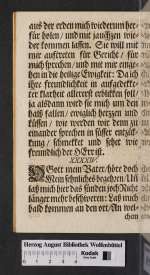 aus der erden mich wiederum her-
für holen/ und mit jauchzen wie-
der kommen lassen. Sie will mit
mir auftreten für Gericht/ für
mich sprechen/ und mit mir einge-
hen in die heilige Ewigkeit: Da ich
ihre freundlichkeit in aufgedeck-
ter klarheit allererst erblicken soll/
ja alsdann wird sie mich um den
halß fallen/ ewiglich hertzen und
küssen/ wie werden wir denn zu
einander sprechen in süsser entzü-
ckung/ schmecket und sehet wie
freundlich der HErr ist.
XXXXIV.
O Gott mein Vater/ höre doch
Mein sehnliches begehren/
laß mich hier das sünden joch Nicht
länger mehr beschweren: Laß mich
bald kommen an den ort/ An wel-
chem
Herzog August Bibliothek Wolfenbüttel